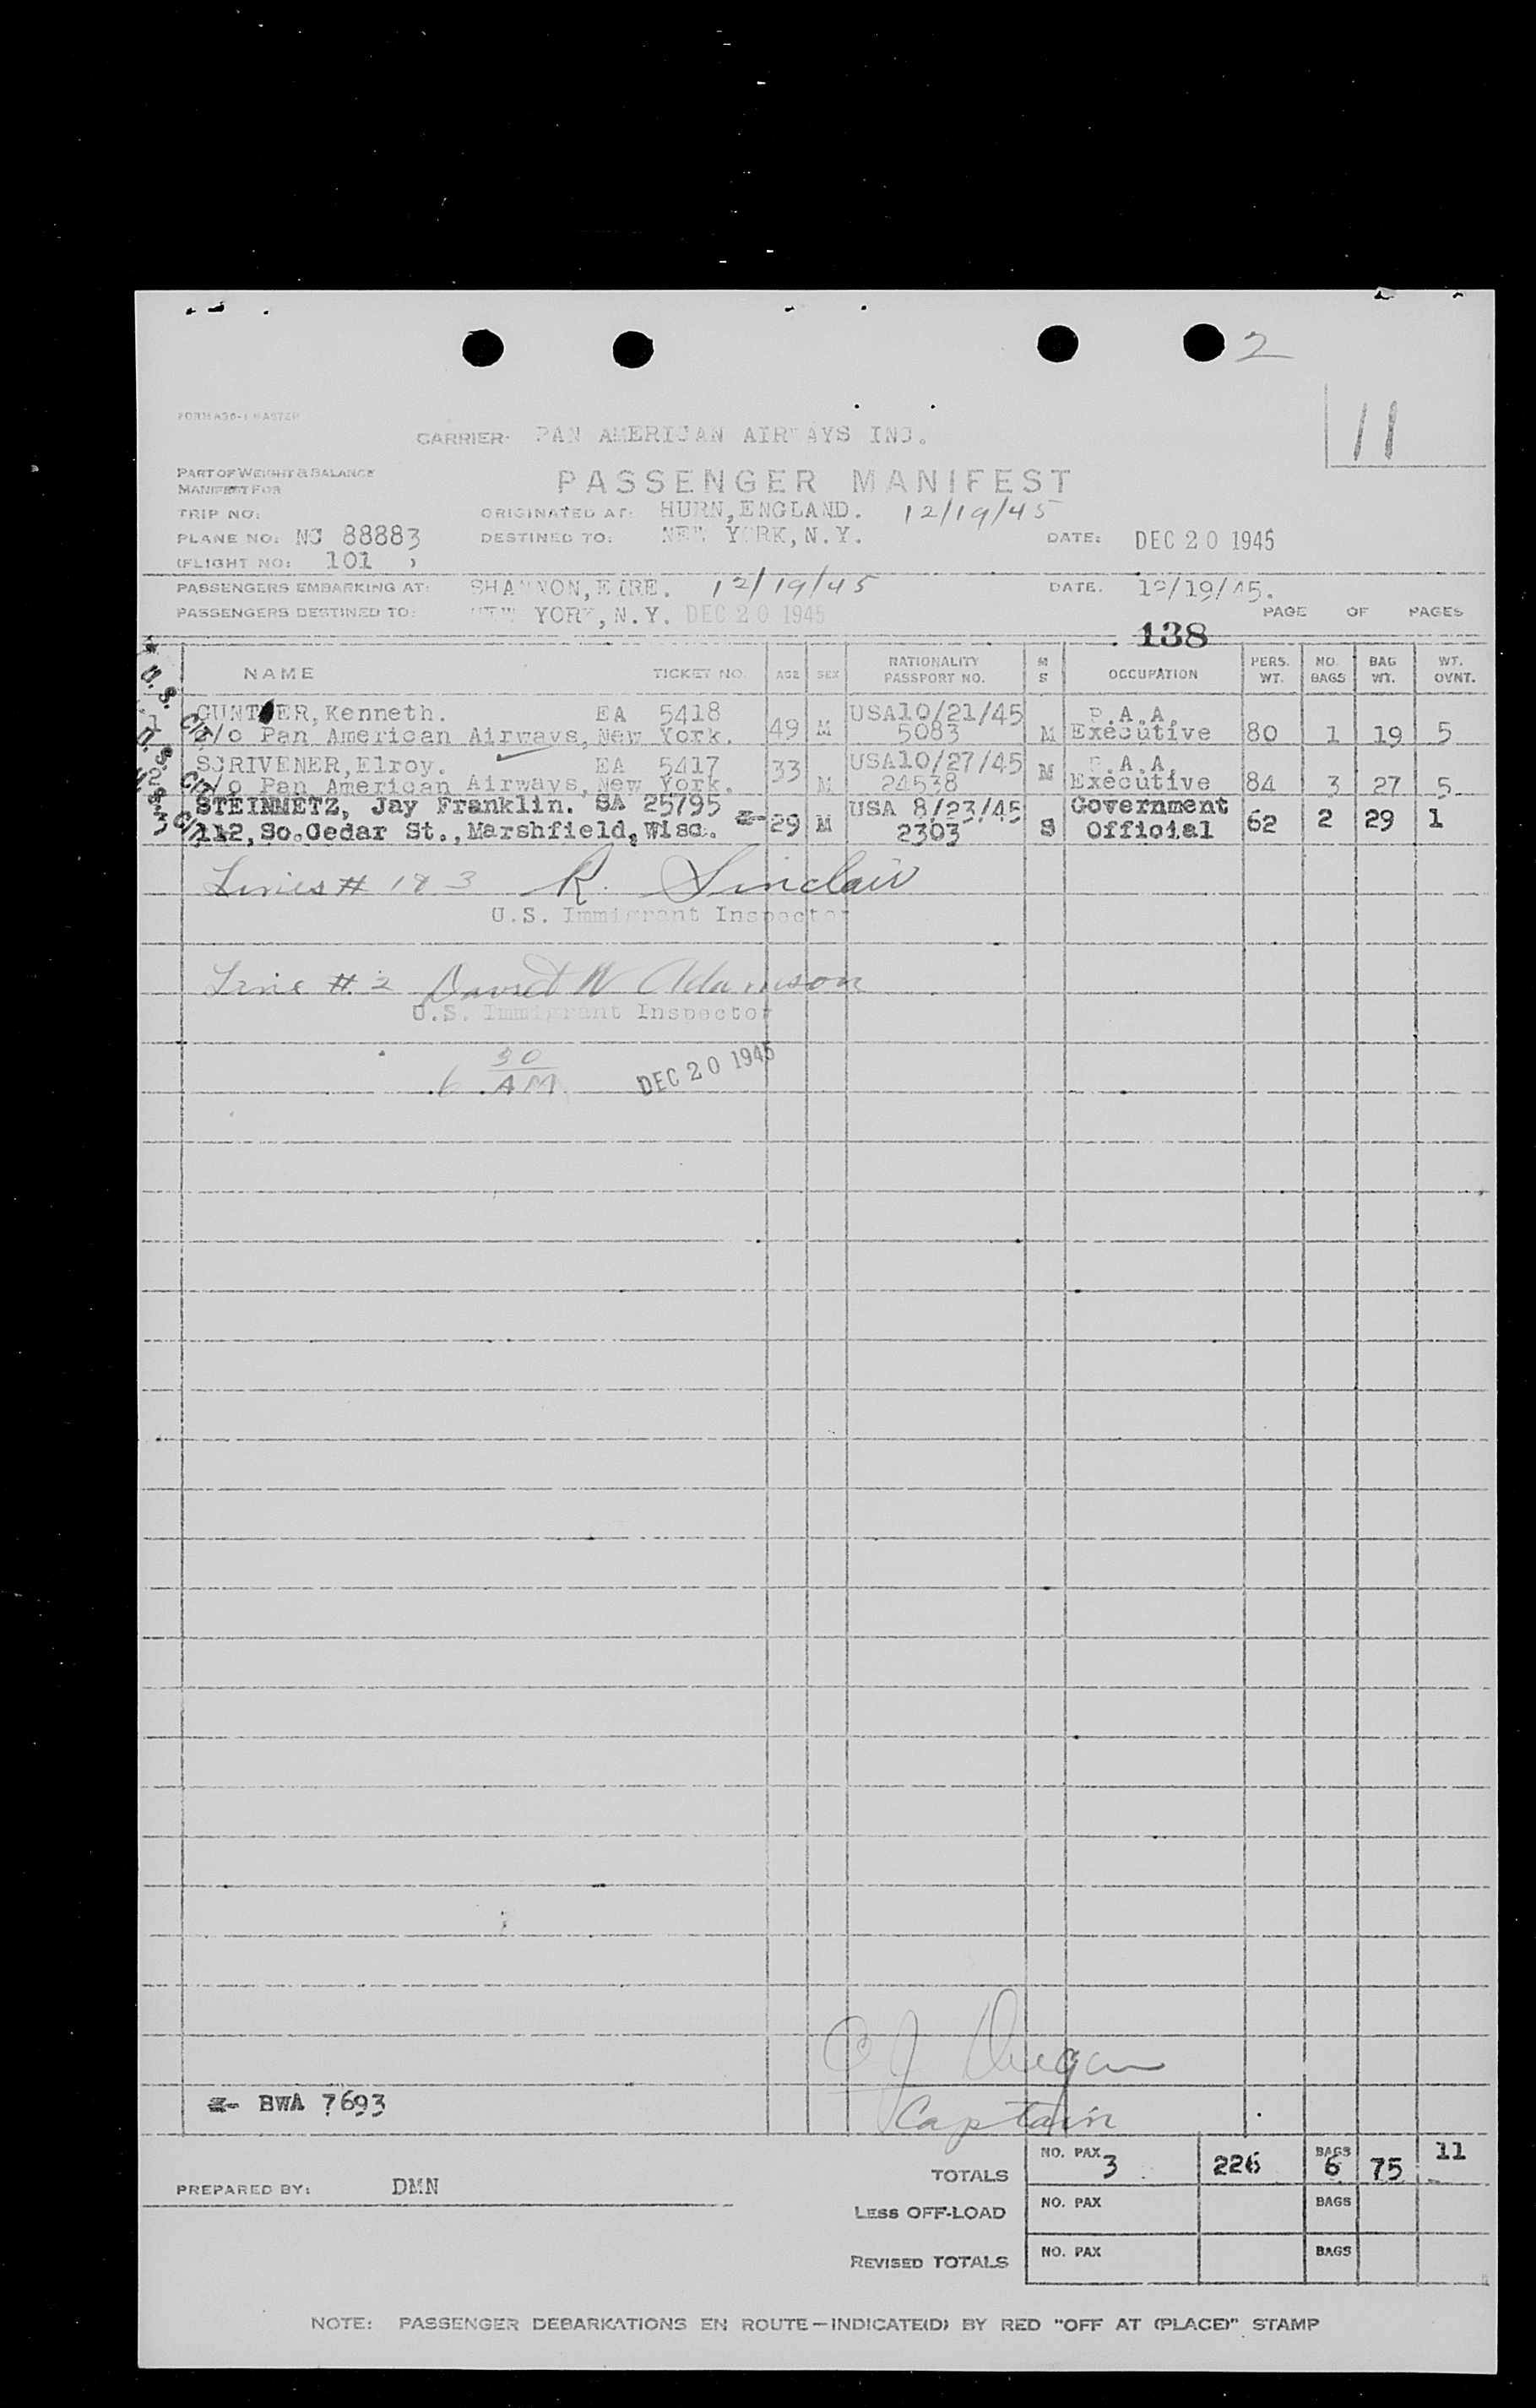 2
11
FORM 430-1 MASTER
CARRIER: PAN AMERICAN AIRWAYS INC.
PART OF WEIGHT & BALANCE
MANIFEST FOR
PASSENGER MANIFEST
TRIP NO: ORIGINATED AT: HURN, ENGLAND. 12/19/45
PLANE NO: NC 88883 DESTINED TO: NEW YORK, N.Y. DATE: DEC 20 1945
(FLIGHT NO: 101 )
PASSENGERS EMBARKING AT: SHANNON, EIRE. 12/19/45 DATE. 12/19/45.
PASSENGERS DESTINED TO: NEW YORK, N.Y. DEC 20 1945 PAGE OF PAGES
138
NAME TICKET NO. AGE SEX NATIONALITY PASSPORT NO. M S OCCUPATION PERS. WT. NO. BAGS BAG WT. WT. OVNT.
U.S. CIT.
1 GUNTHER, Kenneth. EA 5418 49 M USA10/21/45 M P.A.A. 80 1 19 5
c/o Pan American Airways, New York. 5083 Executive
U.S. CIT.
2 SCRIVENER, Elroy. EA 5417 33 M USA10/27/45 M P.A.A. 84 3 27 5
c/o Pan American Airways, New York. 24538 Executive
U.S. CIT.
3 STEINMETZ, Jay Franklin. SA 25795 29 M USA 8/23/45 S Government 62 2 29 1
112, So. Cedar St., Marshfield, Wisc. 2303 Official
Lines # 1 & 3 R. Sinclair
U.S. Immigrant Inspector
Line # 2 David W Adamson
U.S. Immigrant Inspector
6 30 AM DEC 20 1945
Captain
BWA 7693
TOTALS NO. PAX 3 226 BAGS 6 75 11
PREPARED BY: DMN
LESS OFF-LOAD NO. PAX BAGS
REVISED TOTALS NO. PAX BAGS
NOTE: PASSENGER DEBARKATIONS EN ROUTE—INDICATE(D) BY RED "OFF AT (PLACE)" STAMP